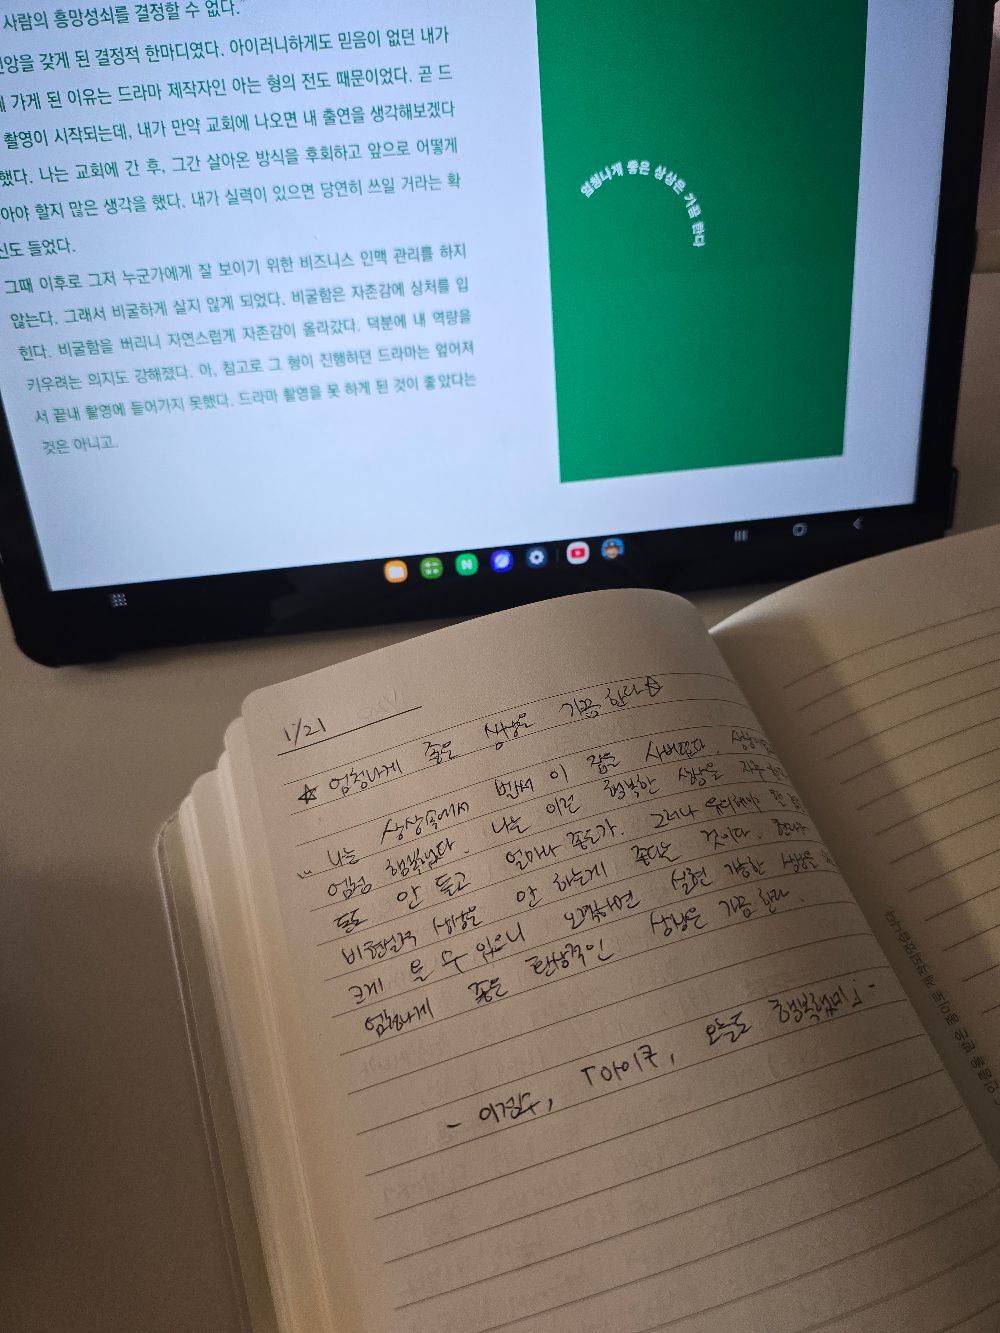 사람의 흥망성쇠를 결정할 수 없다."
갖게 된 결정적 한마디였다. 아이러니하게도 믿음이 없던 내가
가게 된 이유는 드라마 제작자인 아는 형의 전도 때문이었다. 곧 드
촬영이 시작되는데, 내가 만약 교회에 나오면 내 출연을 생각해보겠다
했다. 나는 교회에 간 후, 그간 살아온 방식을 후회하고 앞으로 어떻게
아야 할지 많은 생각을 했다. 내가 실력이 있으면 당연히 쓰일 거라는 확
신도 들었다.
그때 이후로 그저 누군가에게 잘 보이기 위한 비즈니스 인맥 관리를 하지
않는다. 그래서 비굴하게 살지 않게 되었다. 비굴함은 자존감에 상처를 입
힌다. 비굴함을 버리니 자연스럽게 자존감이 올라갔다. 덕분에 내 역량을
키우려는 의지도 강해졌다. 아, 참고로 그 형이 진행하던 드라마는 엎어져
서 끝내 촬영에 들어가지 못했다. 드라마 촬영을 못 하게 된 것이 좋았다는
것은 아니고.
엄청나게 좋은 상상은 가끔 한다
1/21
☆ 엄청나게 좋은 상상은 가끔 한다 ☆
" 나는 상상속에서 벌써 이 집을 사버렸다.
엄청 행복했다. 나는 이런 행복한 상상을 자주
돈도 안 들고 얼마나 좋은가. 그러나 유의해야
비현실적 상상은 안 하는게 좋다는 것이다.
크게 올 수 있으니 오락하면 실현 가능한 상상을
엄청나게 좋은 환상적인 상상은 가끔 한다.
- 이정수, 「아이쿠, 오늘도 행복했네」 -